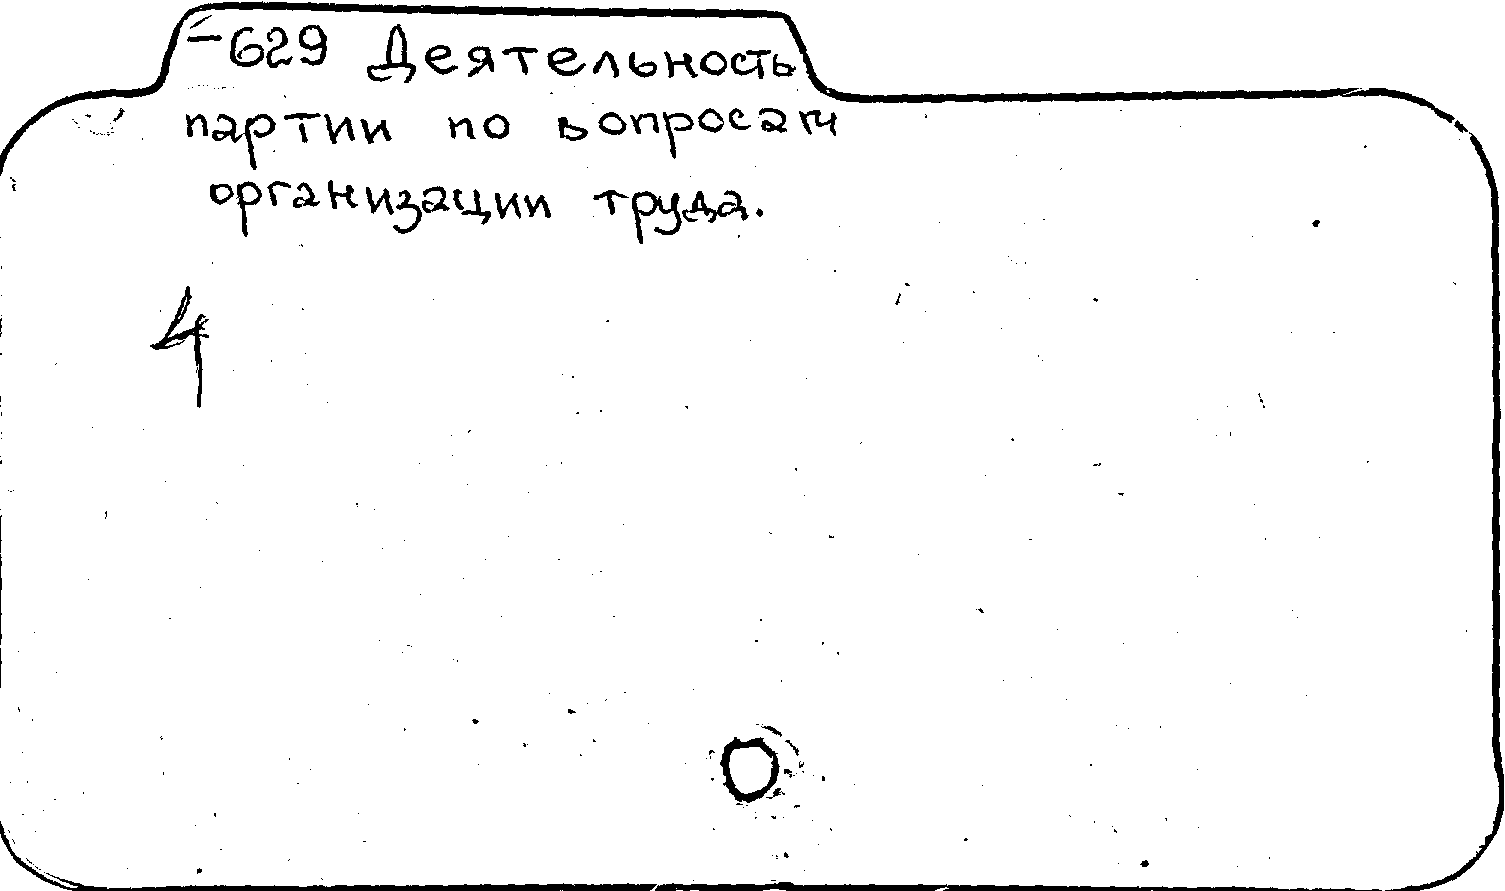 -629 Деятельность
партии по вопросам
организации труда.
4